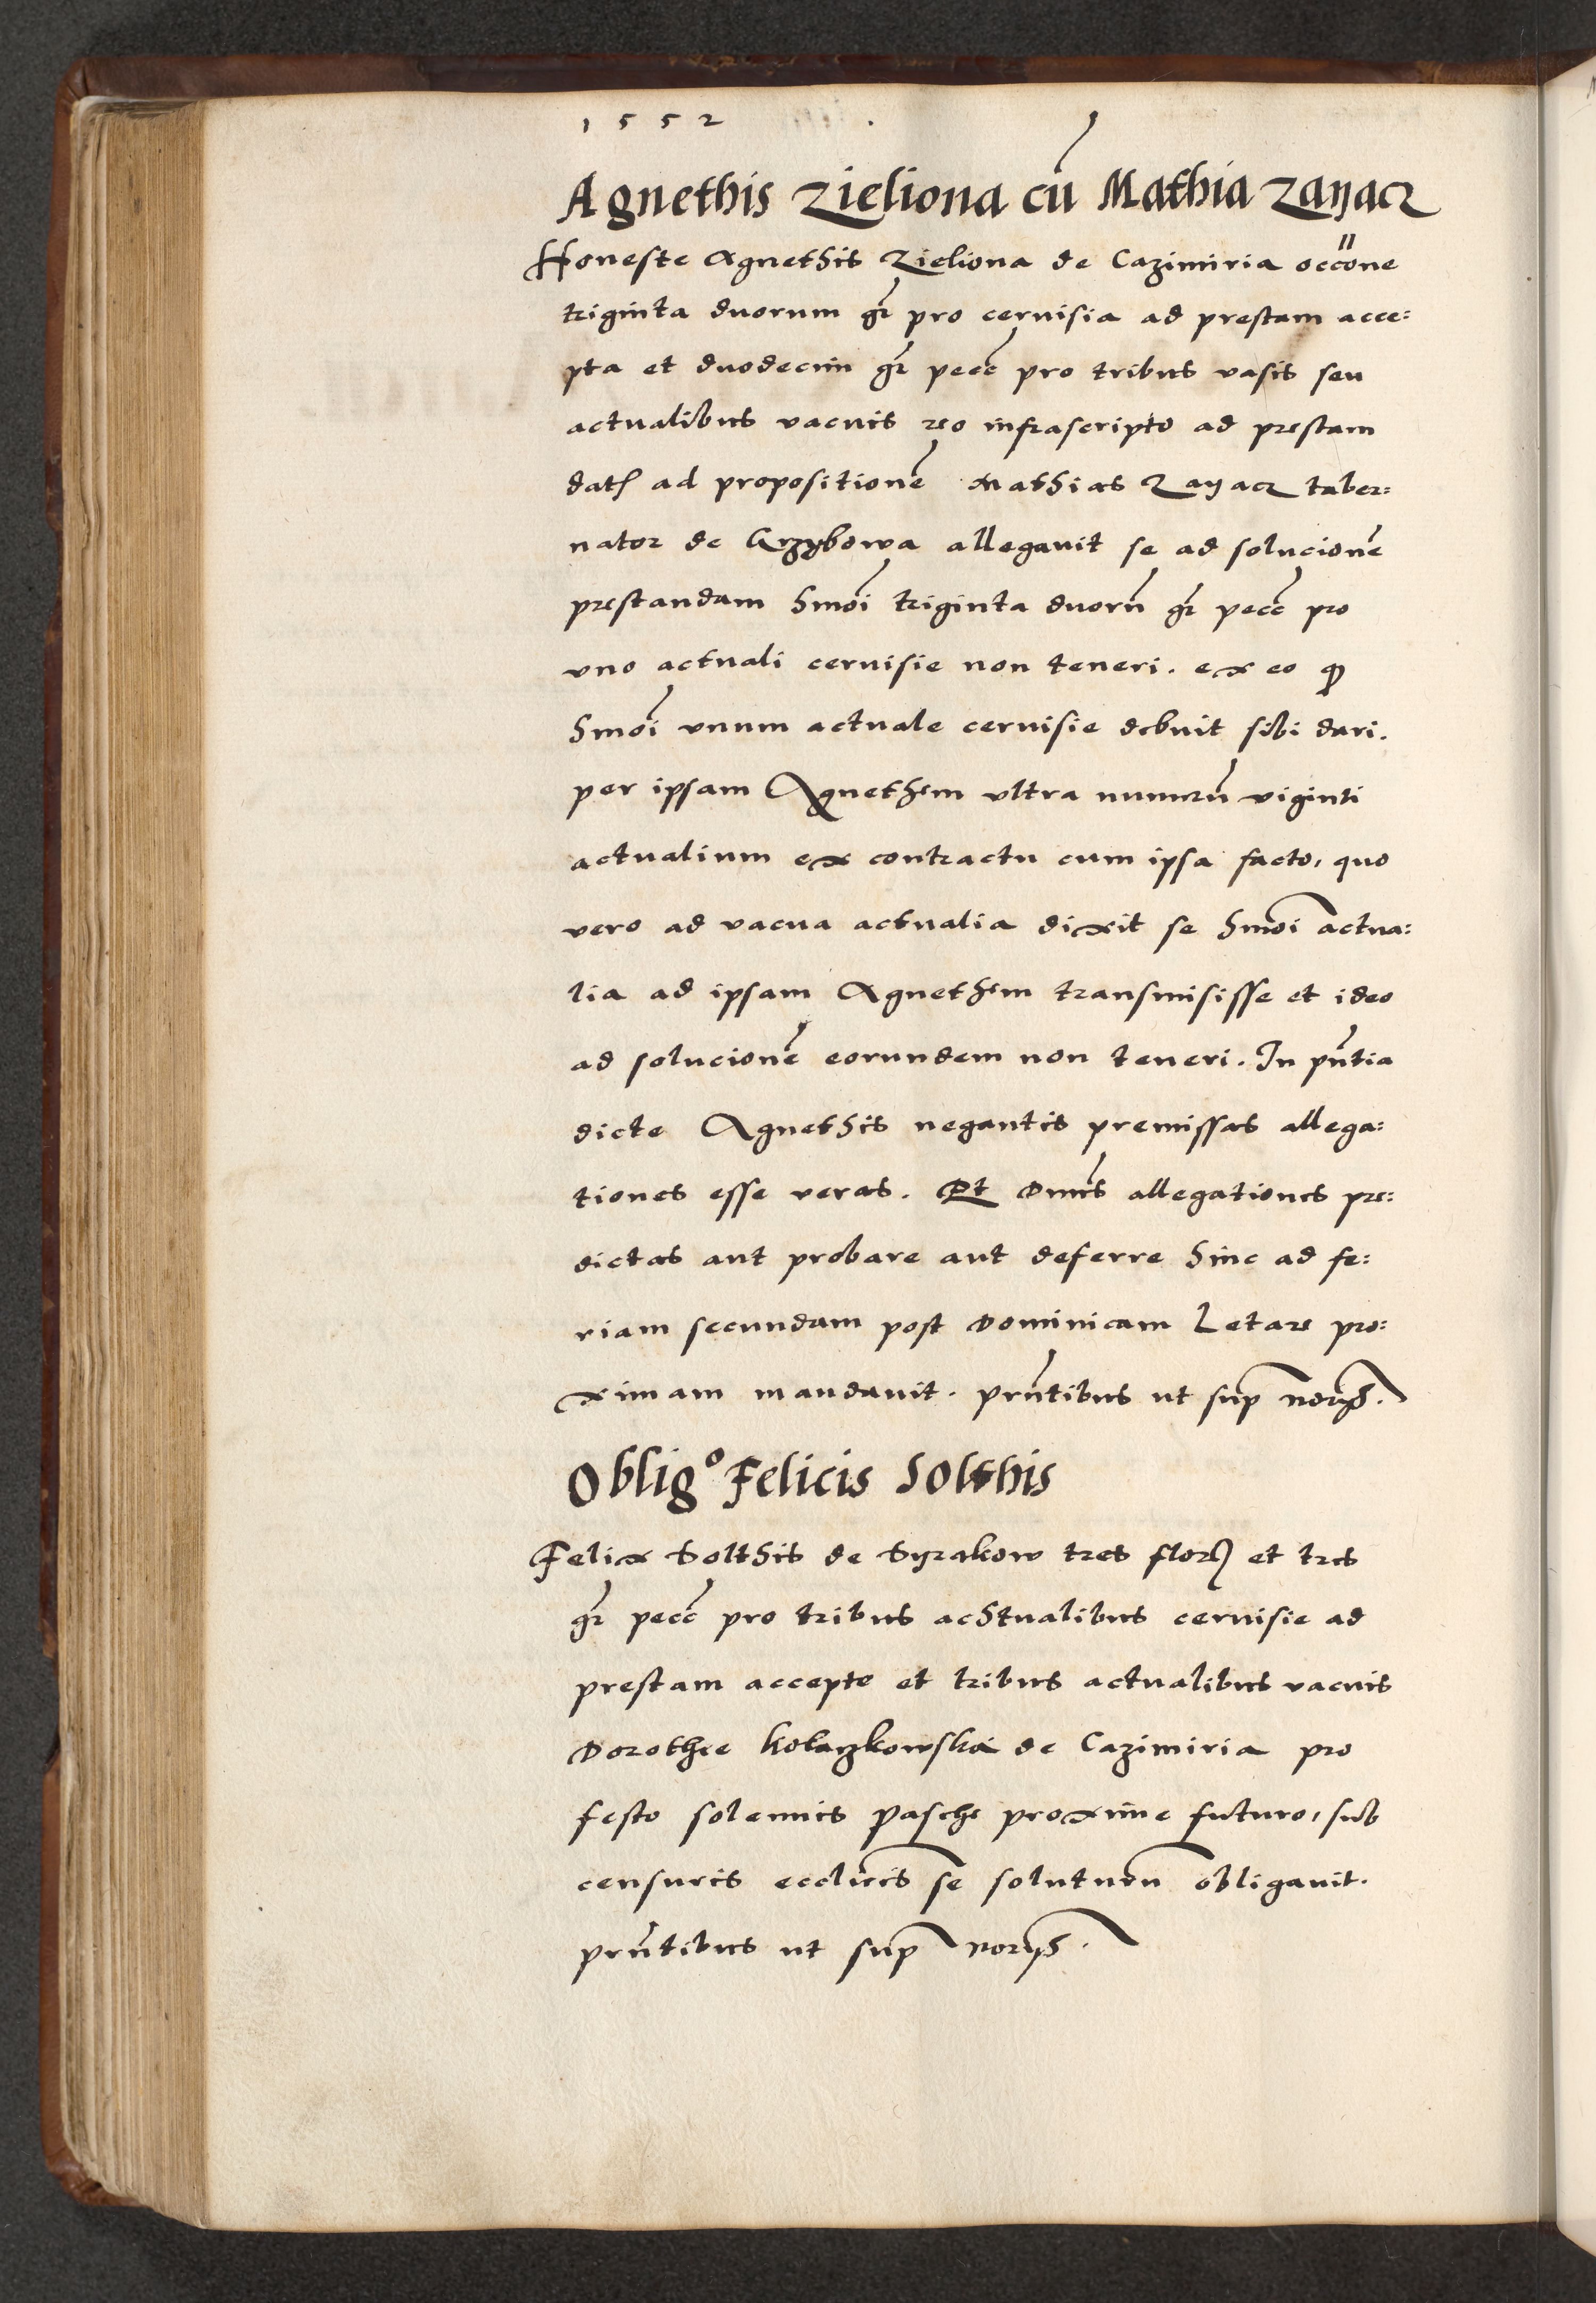 1552
Agnethis Zieliona cū Mathia Zayacz
Honeste Agnethis Zieliona de Cazimiria occōne
triginta duorum gr̄ pro cervisia ad prestam acce:
pta et duodecim gr̄ pecc̄ pro tribus vasis seu
actualibus vacuis reo infrascripto ad prestam
dat̄ ad propositionē Mathias Zayacz taber:
nator de Grzybowa allegavit se ad solucionē
prestandam hmōi triginta duorū gr̄ pecc̄ pro
uno actuali cervisie non teneri. ex eo qꝫ
hmōi unum actuale cervisie debuit sibi dari.
per ipsam Agnethem ultra numerū viginti
actualium ex contractu cum ipsa facto, quo
vero ad vacua actualia dixit se hmōi actua:
lia ad ipsam Agnethem transmisisse et ideo
ad solucionē eorundem non teneri. In pn̄tia
dicte Agnethis negantis premissas allega:
tiones esse veras. Et Dn̄us allegationes pre:
dictas aut probare aut deferre hinc ad fe:
riam secundam post Dominicam Letare pro:
ximam mandavit. prn̄tibus ut sup
Obligº Felicis Solthis
Felix Solthis de Syrakow tres flor̄ et tres
gr̄ pecc̄ pro tribus achtualibus cervisie ad
prestam accepte et tribus actualibus vacuis
Dorothee de Cazimiria pro
festo solemnis Pasche proxime futuro, sub
censuris eccl̄icis se soluturū obligavit.
prn̄tibus ut sup